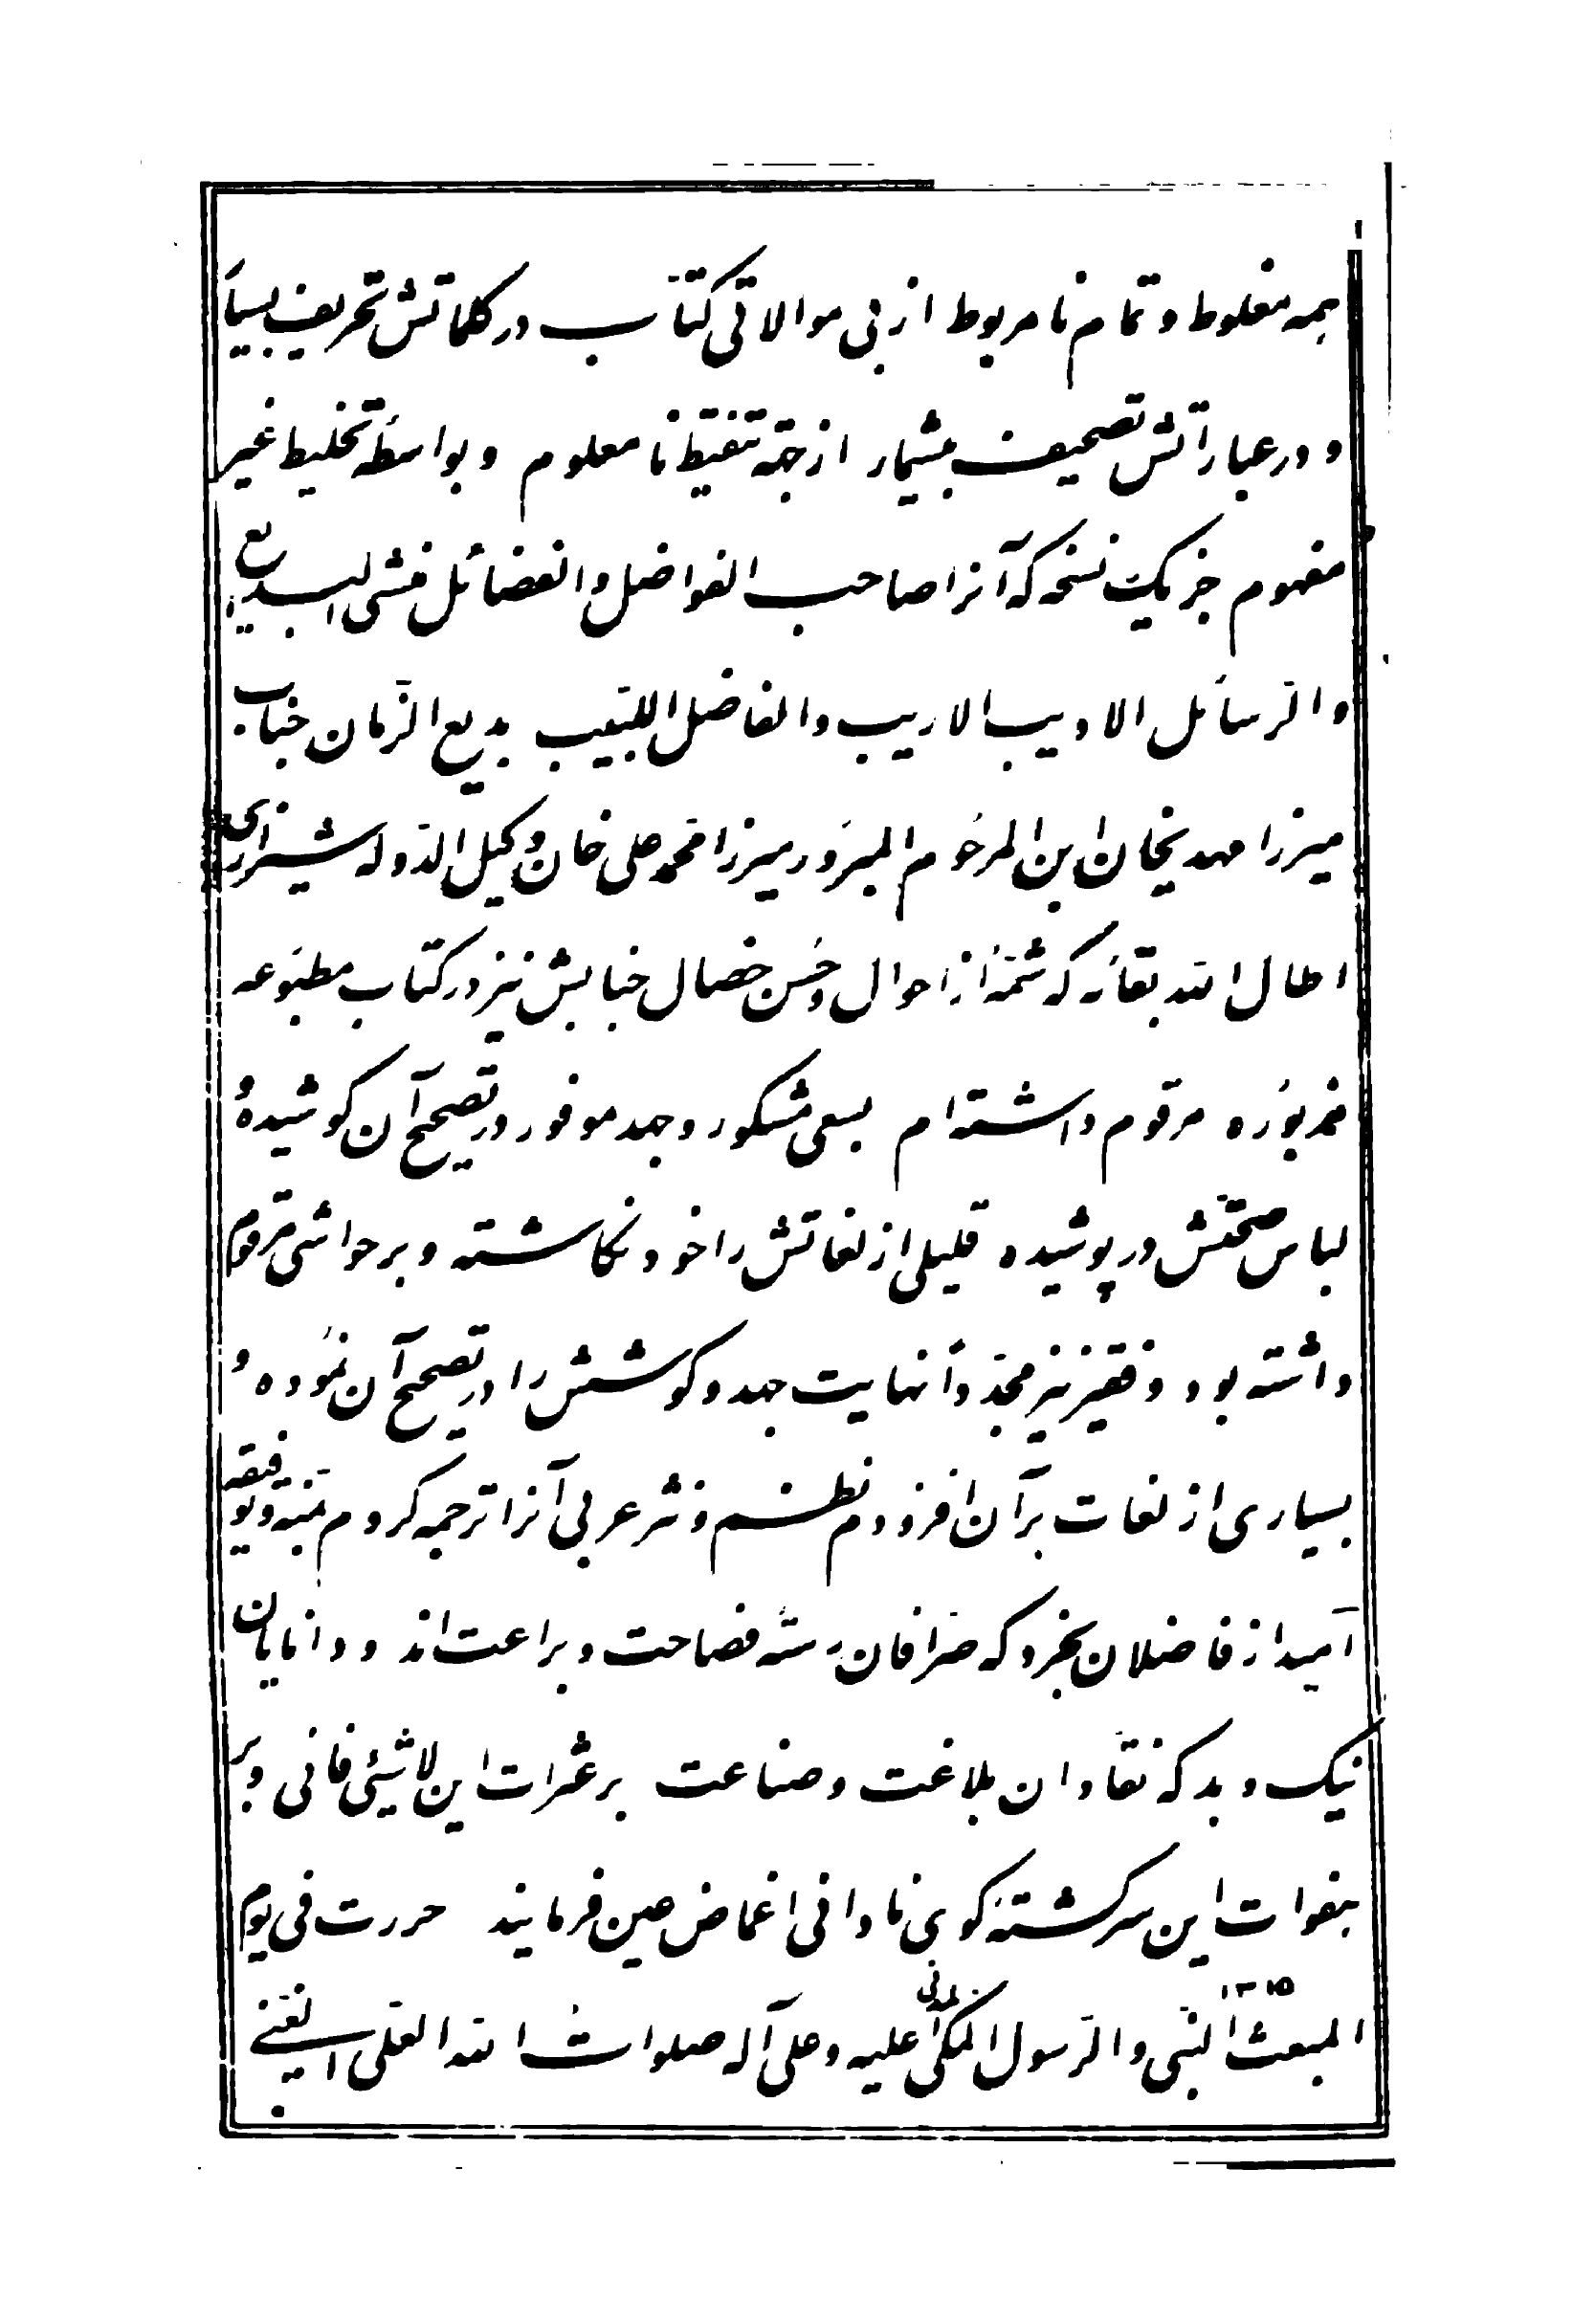 همه مغلوط و تمام نامربوط از بی موالاتی کتّاب در کلماتش تحریف بسیار
و در عباراتش تصحیف بیشمار از جهة تنقیط نا معلوم و بواسطهٔ تخلیط غیر
مفهوم جز یک نسخه که آنرا صاحب الفواضل و الفضائل منشی البدایع
و الرّسائل الادیب الاریب و الفاضل اللّبیب بدیع الزّمان جناب
میرزا مهدیخان ابن المرحوم المبرور میرزا محمّد علی خان وکیل الدّوله شیرازی
اطال الله بقائه که شمّهٔ از احوال و حُسن خصال جنابش نیز در کتاب مطبوعه
مزبوره مرقوم داشته ام بسعی مشکور و جهد موفور در تصحیح آن کوشیده و
لباس صحّتش در پوشیده قلیلی از لغاتش را خود نکاشته و بر حواشی مرقوم
داشته بود و فقیر نیز مجدّداً نهایت جهد و کوشش را در تصحیح آن نموده و
بسیاری از لغات بر آن افزودم نظم و نثر عربی آنرا ترجمه کردم بمنّه و توفیقه
امید از فاضلان بخرد که صرّافان رستهٔ فصاحت و براعت اند و دانایان
نیک و بد که نقّادان بلاغت و صناعت بر عثرات این لاشیئی فانی و بر
هفوات این سرکشتهٔ کوی نادانی اغماض عین فرمایند حررت فی یوم
المبعث النّبی و الرّسول المکّی المدنی علیه و علی آله صلوات الله العلی الغنی ۱۳۱۵